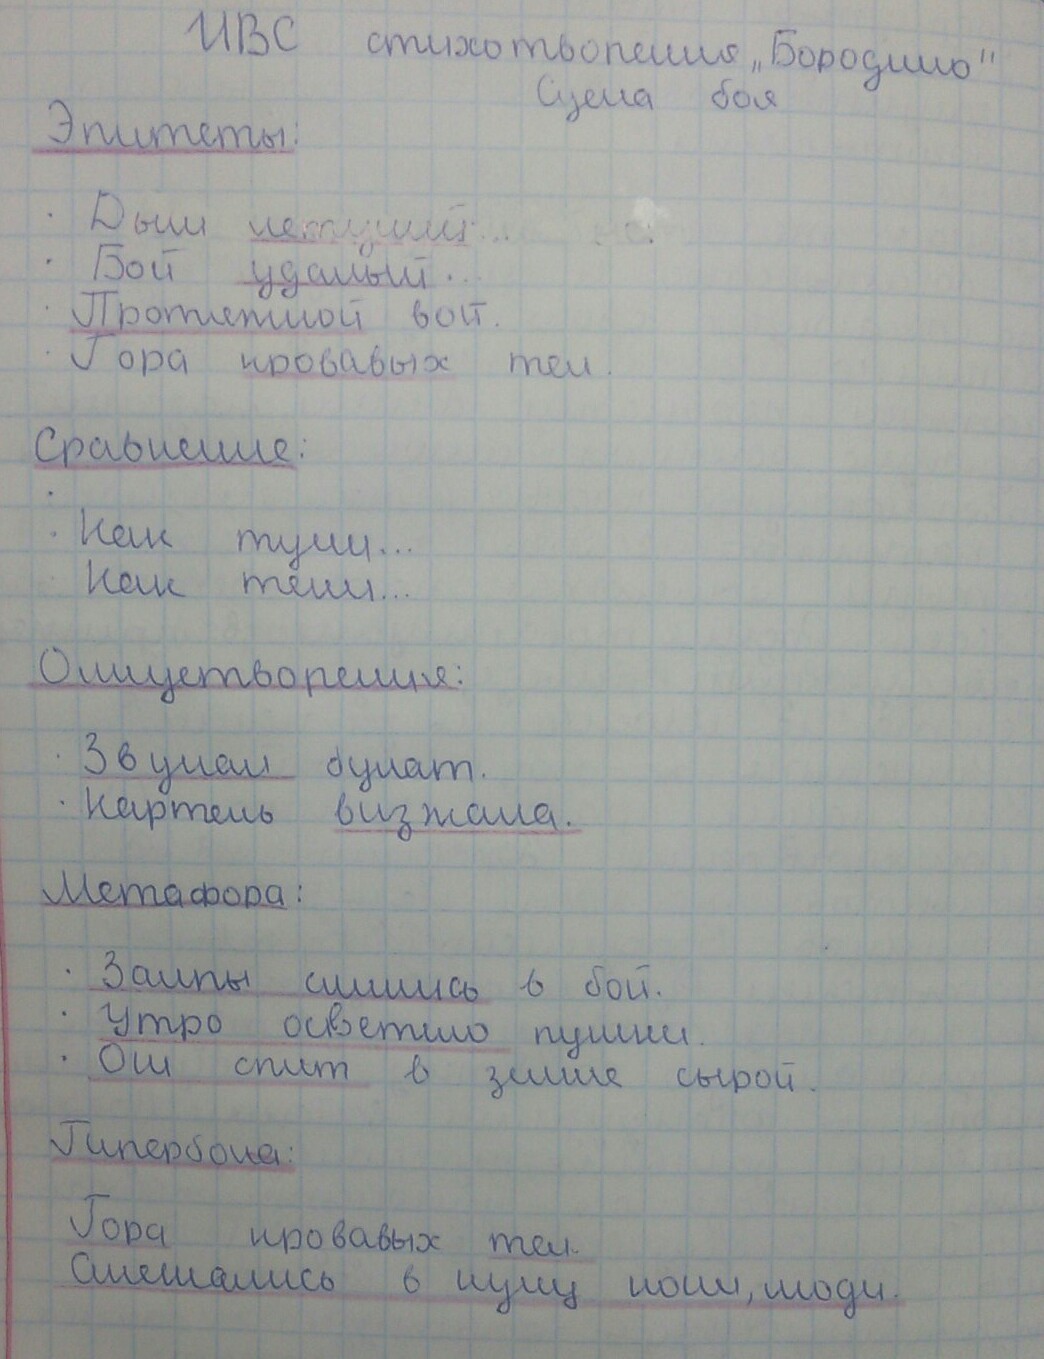 ИВС стихотворения „Бородино"
Сцена боя
Эпитеты:
· Дым летучий...
· Бой удалый...
· Протяжной вой.
· Гора кровавых тел.
Сравнение:
· Как тучи...
Как тени...
Олицетворения:
· Звучал булат.
· Картечь визжала.
Метафора:
· Залпы слились в бой.
· Утро осветило пушки.
· Он спит в земле сырой.
Гипербола:
Гора кровавых тел.
Смешались в кучу кони, люди.